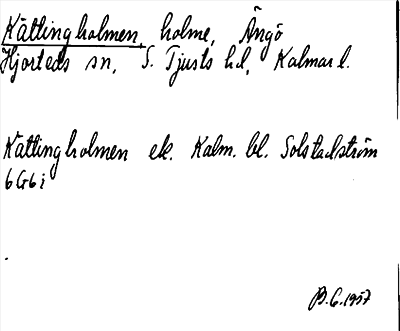 Kättingholmen, holme, Ängö
Hjorteds sn, S. Tjusts hd, Kalmar l.
Kättingholmen ek. Kalm. bl. Solstadström
6G6i
B.G. 1957